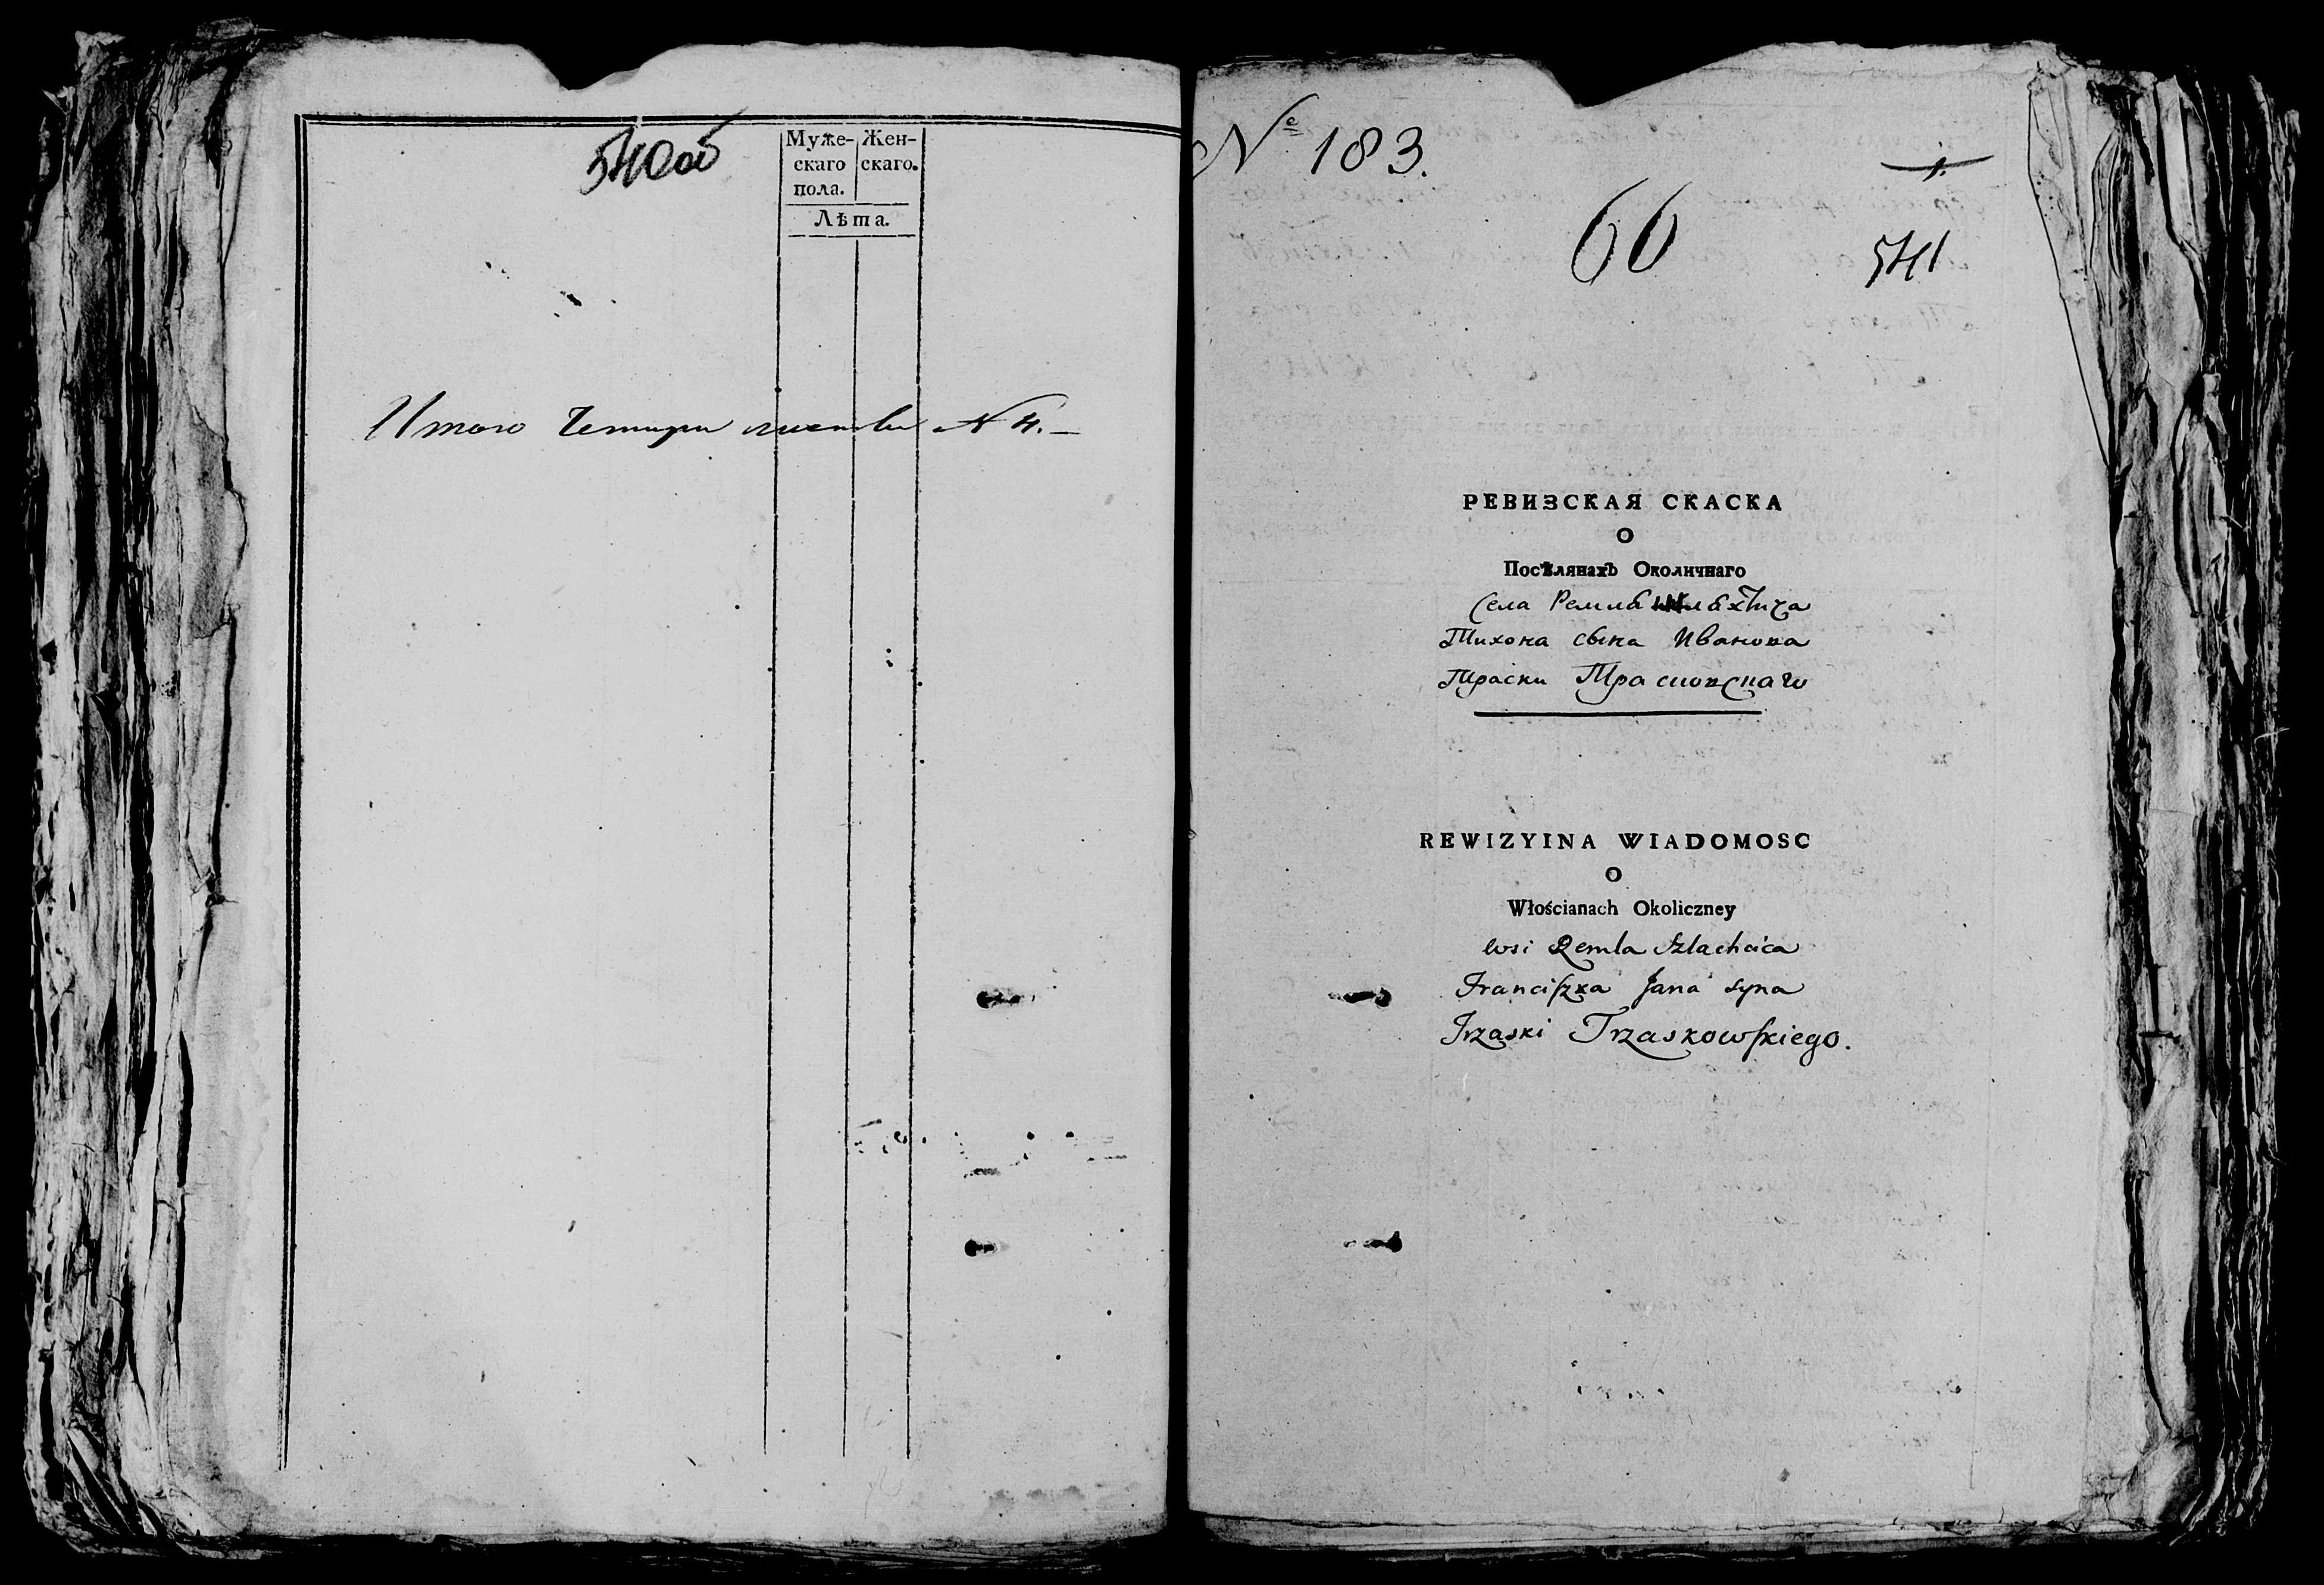 540об
Муже- Жен-
скаго скаго.
пола.
Лѣта.
Итого Четыри листы N 4.
№ 183.
1.
66
541
РЕВИЗСКАЯ СКАСКА
О
Посѣлянахъ Околичнаго
Села Ремля Шляхтича
Тихона сына Иванова
Траски Трасковскаго
REWIZYINA WIADOMOSC
O
Włościanach Okoliczney
wsi Remla Szlachcica
Franciszka Jana syna
Trzaski Trzaskowskiego.